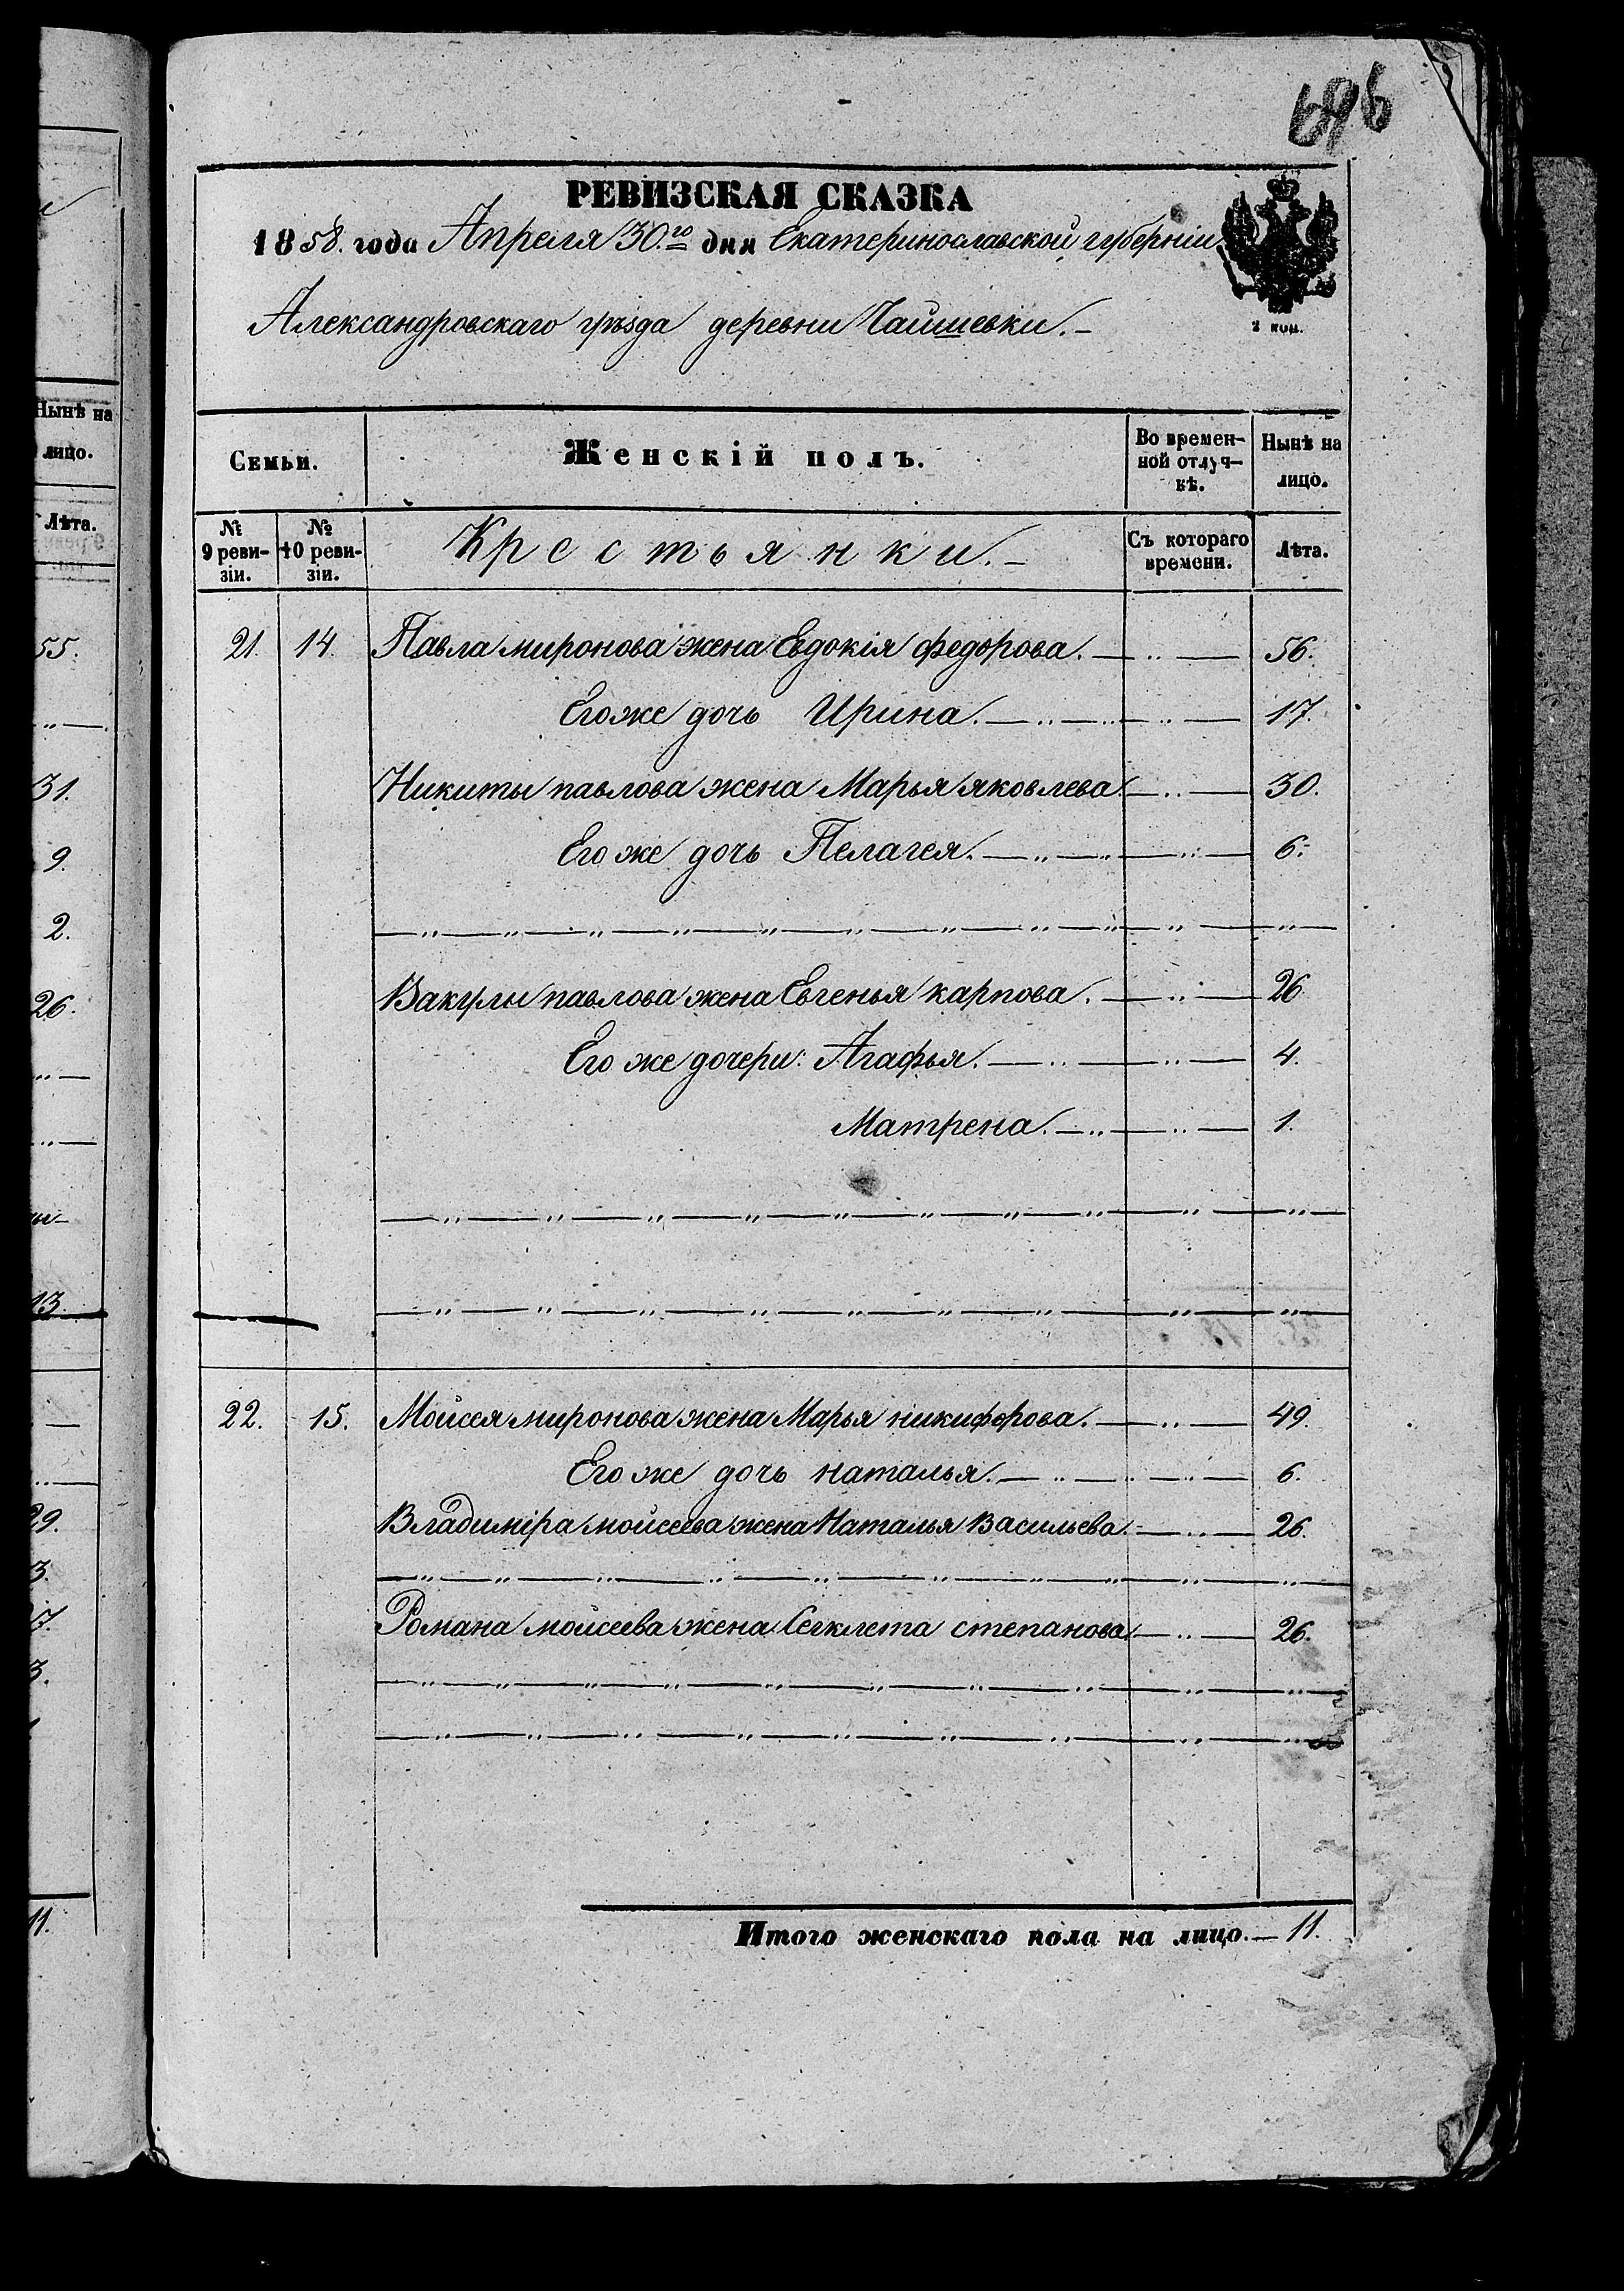 696
РЕВИЗСКАЯ СКАЗКА
1858. года Апреля 30.го дня Екатеринославской губерніи
Александровскаго уѣзда деревни Чайшевки.–
2 коп.
Семьи. Женскій полъ. Во времен-ной отлуч-кѣ. Нынѣ на лицо.
№ 9 реви-зіи. № 10 реви-зіи. Крестьянки.– Съ котораго времени. Лѣта.
21. 14. Павла миронова жена Евдокія федорова. — „ — 56.
Его же дочь Ирина. — „ — „ — „ — 17.
Никиты павлова жена Марья яковлева. — „ — 30.
Его же дочь Пелагея. — „ — „ — „ — 6.
— „ — „ — „ — „ — „ — „ — „ — „ — „ — „ — „ —
Вакулы павлова жена Евгенья карпова. — „ — 26.
Его же дочери: Агафья. — „ — „ — 4.
Матрена. — „ — „ — 1.
— „ — „ — „ — „ — „ — „ — „ — „ — „ — „ —
— „ — „ — „ — „ — „ — „ — „ — „ — „ — „
22. 15. Мойсея миронова жена Марья никифорова. — „ — 49.
Его же дочь наталья. — „ — „ — „ — 6.
Владиміра мойсеева жена Наталья Васильева. — „ — 26.
— „ — „ — „ — „ — „ — „ — „ — „ — „ — „
Романа мойсеева жена Секклета степанова. — „ — 26.
— „ — „ — „ — „ — „ — „ — „ — „ — „ — „ —
— „ — „ — „ — „ — „ — „ — „ — „ — „ —
Итого женскаго пола на лицо. — 11.
Нынѣ на
лицо.
Лѣта.
55.
— „ —
31.
9.
2.
26.
„ —
„ —
13.
—
„ —
29.
3.
7.
3.
11.